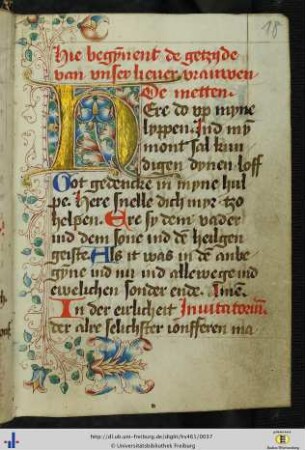 18
Hie begynnent de getzyde
van vnser lieuer vrauwen
De metten.
HEre do vp myne
lyppen. Jnd myn
mont sal kun
digen dynen loff
Got gedencke in myne hul
pe. Here snelle dich myr tzo
helpen. Ere sy dem vader
ind dem sone ind dē heilgen
geiste. Als it was in dem anbe
gyne ind nu ind allewege ind
ewelichen sonder ende. Amē.
In der eirlicheit Inuitatoriū.
der alre selichster ionfferen ma
http://dl.ub.uni-freiburg.de/diglit/hs483/0037
© Universitätsbibliothek Freiburg
Baden-Württemberg